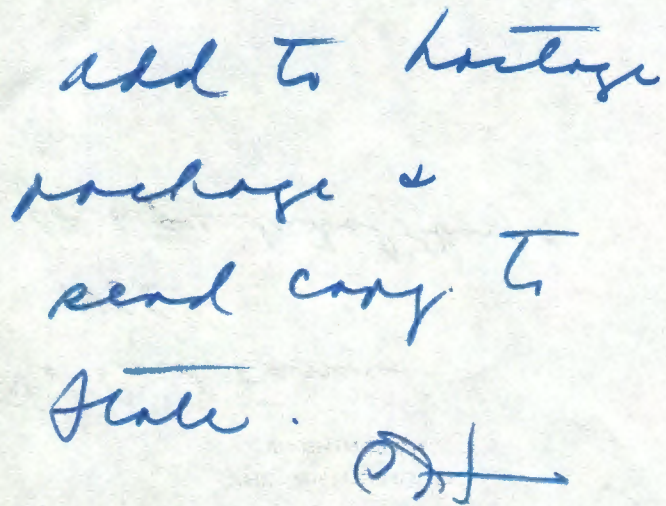 add to hostage
package &
send copy to
State.